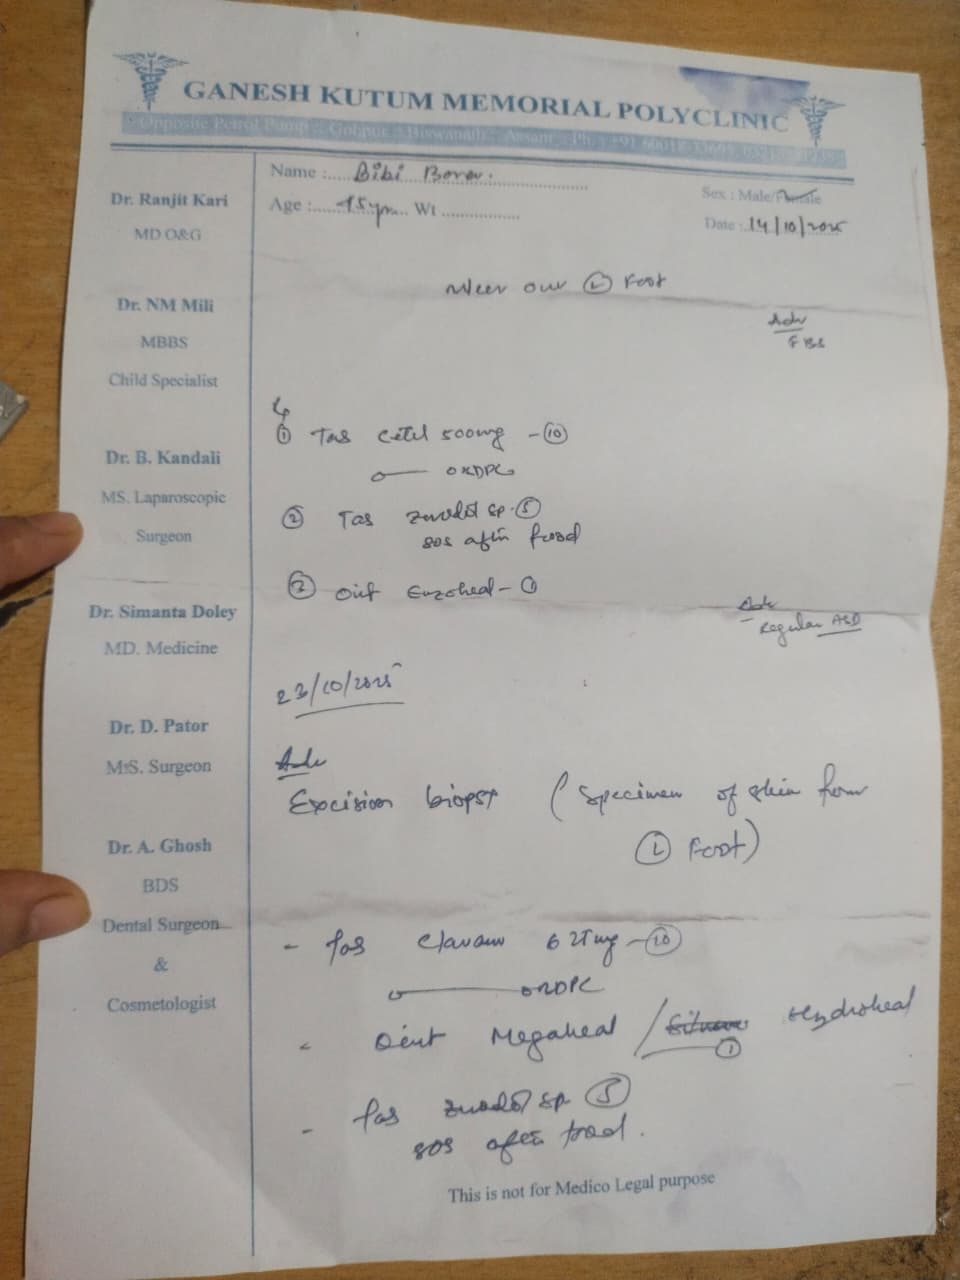 GANESH KUTUM MEMORIAL POLYCLINIC
Opposite Petrol Pump :: Gohpur :: Biswanath :: Assam :: Ph. : +91
Name :..... Bibi Bora.
Sex : Male/Female
Age :..... Wt ..................
Date :..14/10/2025
Dr. Ranjit Kari
MD O&G
Dr. NM Mili
MBBS
Child Specialist
Dr. B. Kandali
MS. Laparoscopic
Surgeon
Dr. Simanta Doley
MD. Medicine
Dr. D. Pator
MS. Surgeon
Dr. A. Ghosh
BDS
Dental Surgeon
&
Cosmetologist
Ulcer over Ⓛ Foot
Adv
FBS
① Tab 500mg - ⑩
② Tab Zerodol SP - ⑤
sos after food
③ Oint Enzoheal - ①
Adv
Regular ASD
23/10/2025
Adv
Excision biopsy (Specimen of skin from
Ⓛ Foot)
- Tab Clavam 625mg - ⑩
- Oint Megaheal / Hydroheal
①
- Tab Zerodol SP ⑤
sos after food.
This is not for Medico Legal purpose